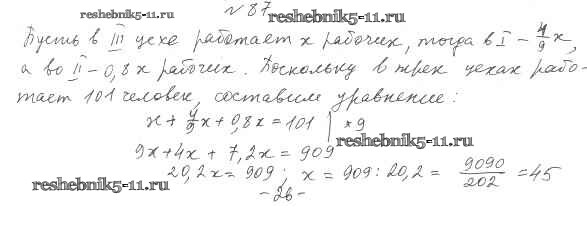 reshebnik5-11.ru № 87 reshebnik5-11.ru
Пусть в III цехе работает x рабочих, тогда в I – 4/9 x,
а во II – 0,8x рабочих. Поскольку в трех цехах рабо-
тает 101 человек, составим уравнение:
x + 4/9 x + 0,8x = 101 | *9
9x + 4x + 7,2x = 909 reshebnik5-11.ru
20,2x = 909 ; x = 909 : 20,2 = 9090/202 = 45
reshebnik5-11.ru - 26 -